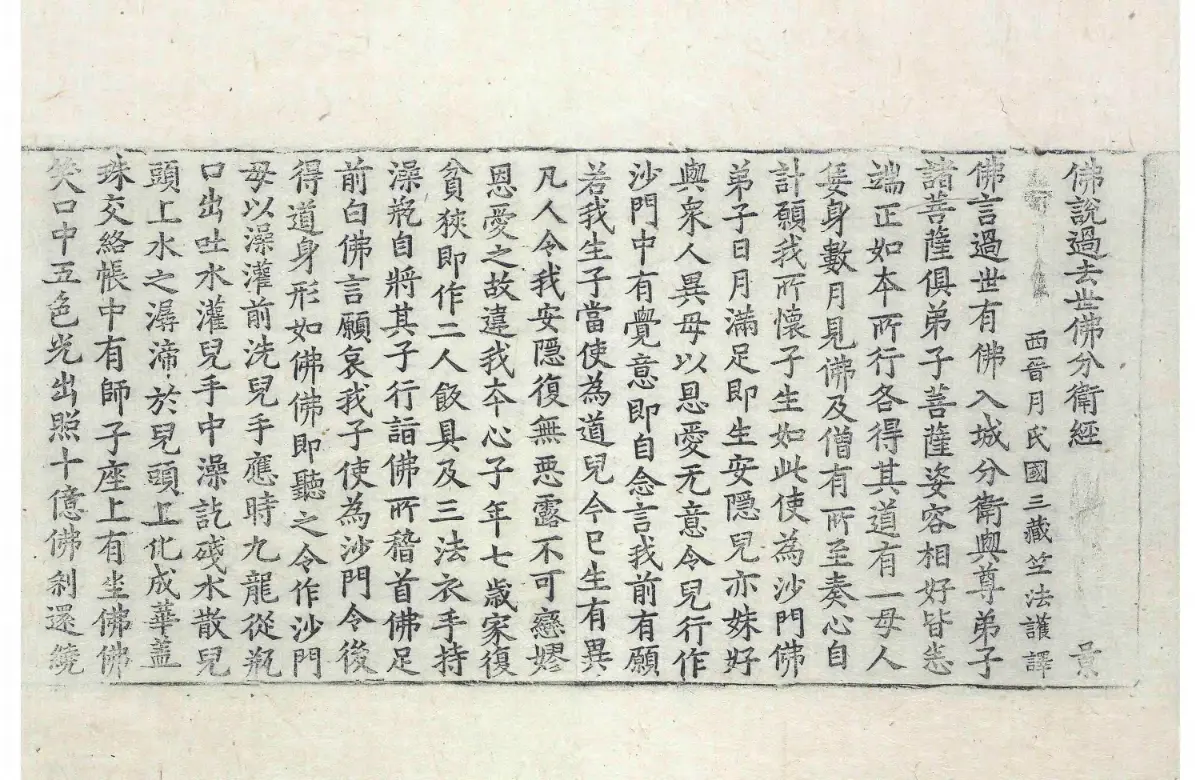 佛說過去世佛分衛經 景
西晉月氏國三藏竺法護譯
佛言過世有佛入城分衛與尊弟子
諸菩薩俱弟子菩薩姿容相好皆悉
端正如本所行各得其道有一母人
妊身數月見佛及僧有所至奏心自
計願我所懷子生如此使為沙門佛
弟子日月滿足即生安隱兒亦姝好
與衆人異母以恩愛无意令兒行作
沙門中有覺意即自念言我前有願
若我生子當使為道兒今已生有異
凡人令我安隱復無惡露不可戀嫪
恩愛之故違我本心子年七歲家復
貧狹即作二人飯具及三法衣手持
澡瓶自將其子行詣佛所稽首佛足
前白佛言願哀我子使為沙門令後
得道身形如佛佛即聽之令作沙門
母以澡灌前洗兒手應時九龍從瓶
口出吐水灌兒手中澡訖殘水散兒
頭上水之潺渧於兒頭上化成華蓋
珠交絡帳中有師子座上有坐佛佛
笑口中五色光出照十億佛剎還繞